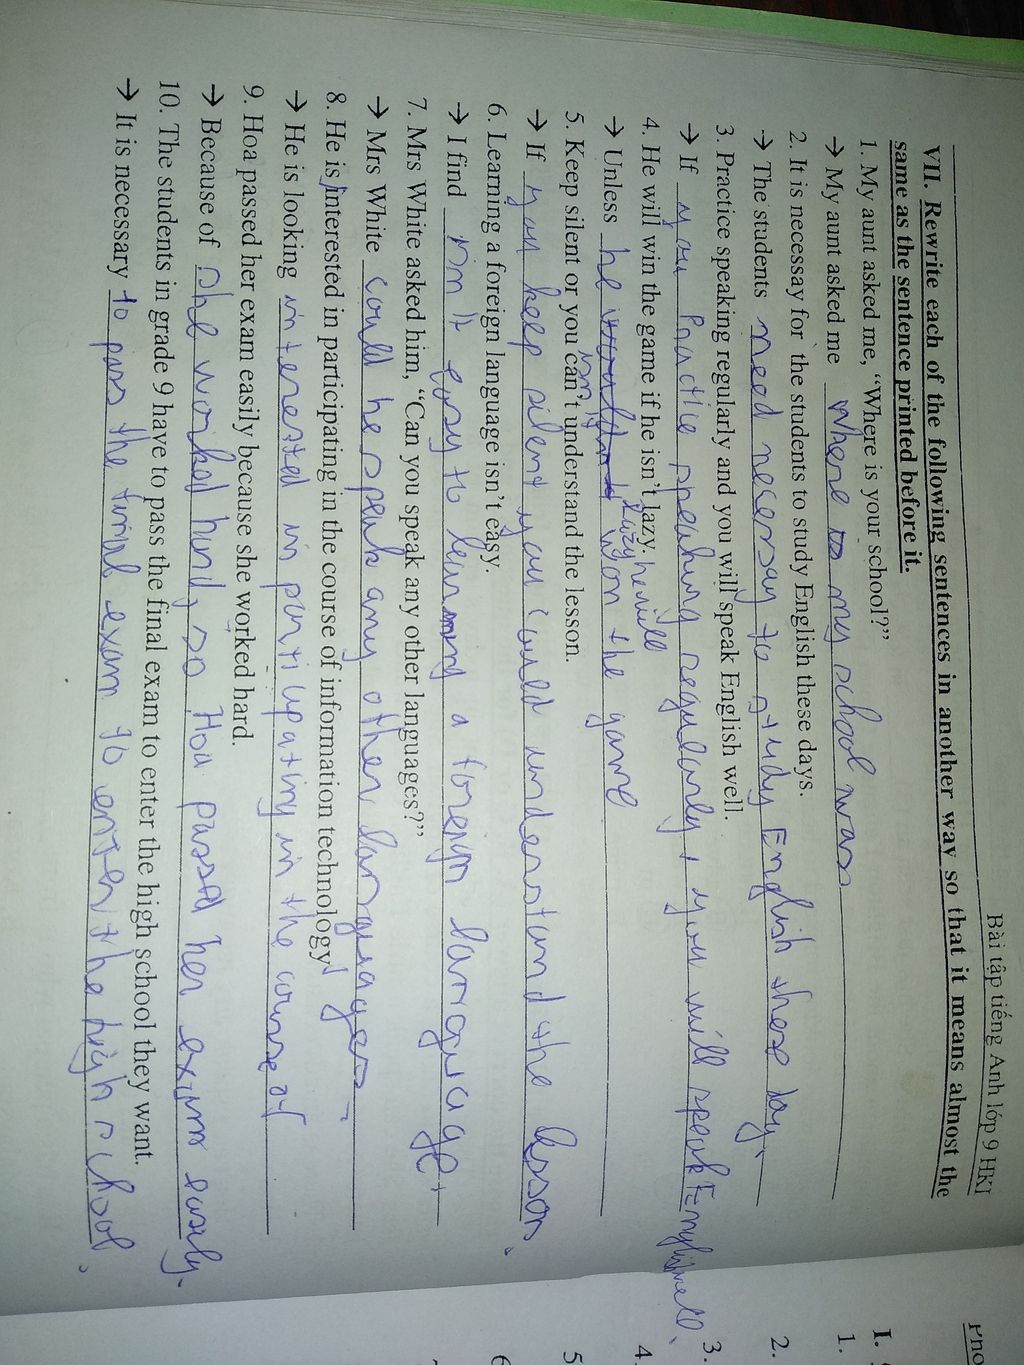 Bài tập tiếng Anh lớp 9 HKI
VII. Rewrite each of the following sentences in another way so that it means almost the
same as the sentence printed before it.
1. My aunt asked me, “Where is your school?”
→ My aunt asked me where my school was
2. It is necessay for the students to study English these days.
→ The students need necersay to study English these day.
3. Practice speaking regularly and you will speak English well.
→ If you Practie speaking regularly, you will speak English well.
4. He will win the game if he isn't lazy.
→ Unless he isn't lazy, he will won the game
5. Keep silent or you can't understand the lesson.
→ If you keep silent you could understand the lesson.
6. Learning a foreign language isn't easy.
→ I find it easy to learn a foreign language.
7. Mrs White asked him, “Can you speak any other languages?”
→ Mrs White could he speak any other languages
8. He is interested in participating in the course of information technology
→ He is looking interested in participating in the course of
9. Hoa passed her exam easily because she worked hard.
→ Because of she worked hard, so Hoa passed her exam easily.
10. The students in grade 9 have to pass the final exam to enter the high school they want.
→ It is necessary to pass the final exam to enter the high school.
I.
1.
2.
3.
4.
5
6